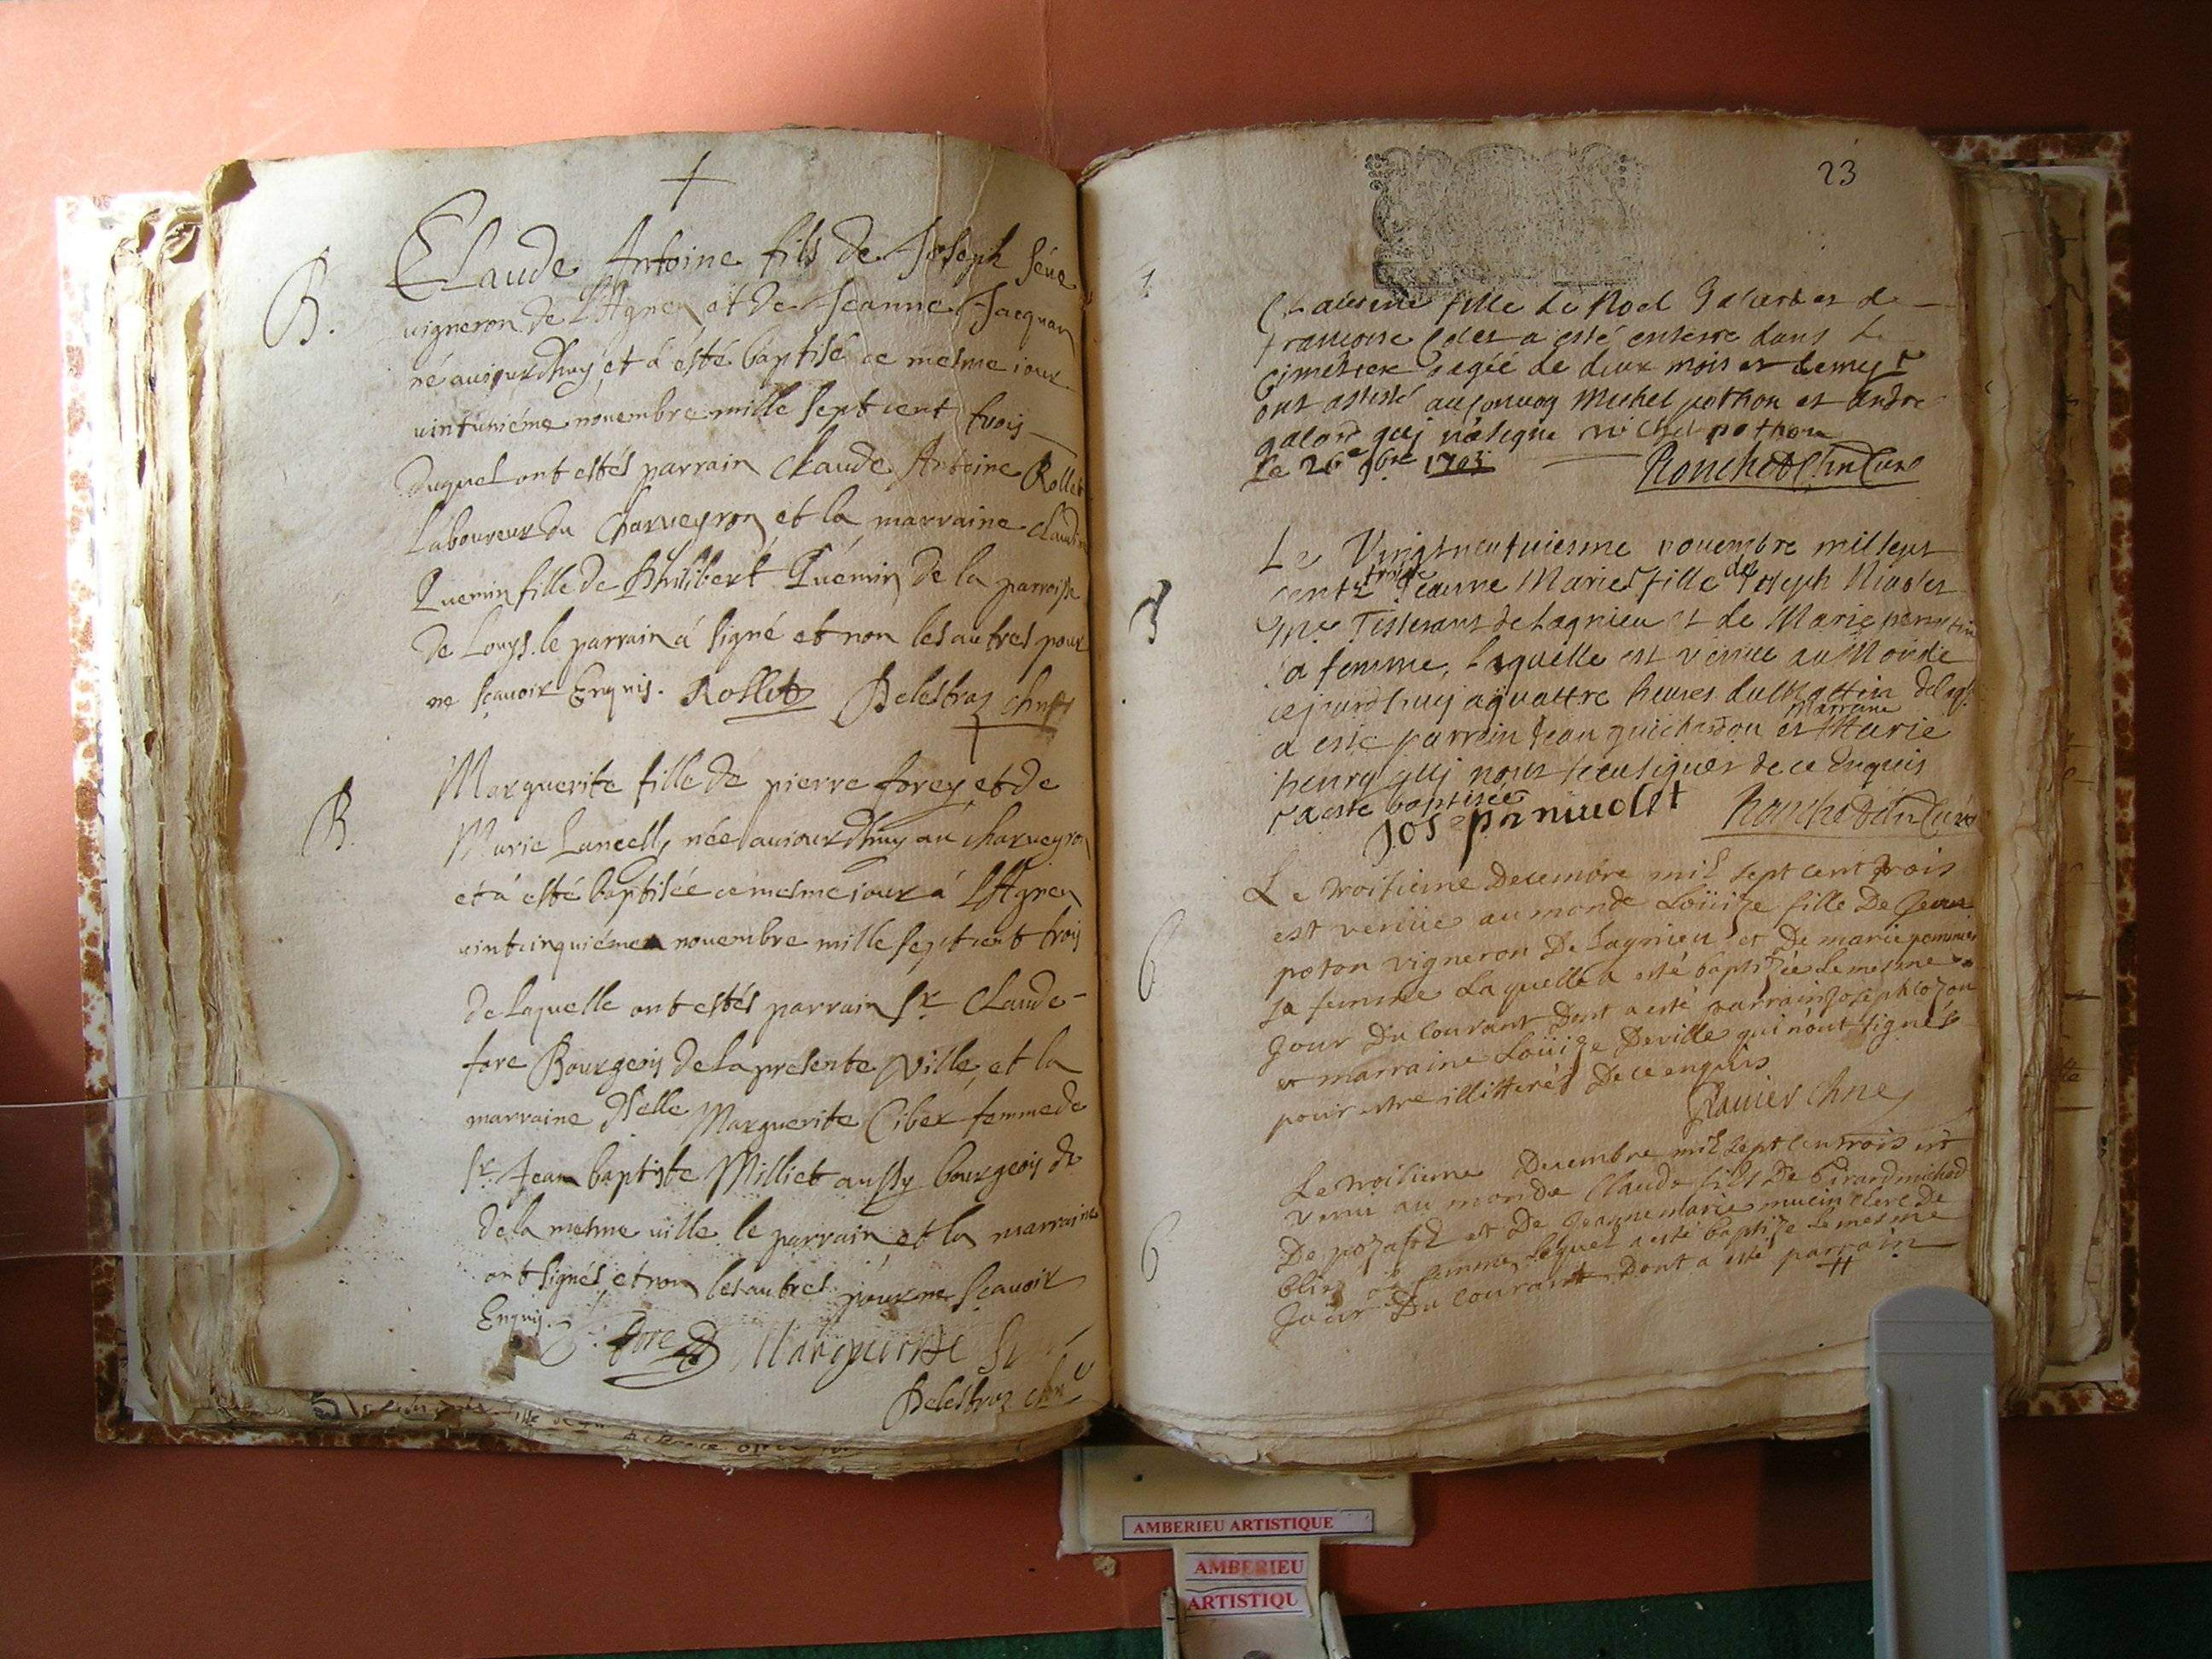 B.
Claude Antoine fils de Joseph Séue
uigneron de L'Agneu et de Jeanne Jacquan
né auiourdhuy et á ésté baptisé ce mesme iour
uintuniéme nouembre mille sept cent trois
Duquel ont estés parrain Claude Antoine Rollet
Laboureur du Charueyron et la marraine Claudine
Quemin fille de Philibert Quémin de la parroisse
de Loyes. le parrain á signé et non les autres pour
ne sçauoir Enquis. Rollet Delestraz
B.
Marguerite fille de pierre forey et de
Marie Lancelly née auiourdhuy au charueyron
et á esté baptisée ce mesme iour á L'Agneu
uintcinquiéme nouembre mille sept cent trois
de Laquelle ont estés parrain Sr Claude
fore Bourgeois de la presente Ville, et la
marraine dselle Marguerite Ciber femme de
Sr. Jean baptiste Milliet aussy bourgeois de
de la mesme uille le parrain et la marraine
ont signés et non les autres pour ne sçauoir
Enquis.
fore Marguerite
Delestraz
23
fille de Noel et de
francoise a esté enterré dans le
Cimetiere agéé de deux mois et demy
ont assisté au conuoy Michel pothon et André
galand quj n'a signé michel pothon
Le 26e 9bre 1703
Le Vingtneufuiesme nouembre mil sept
cents trois Jeanne Marie fille de Joseph
Me Tisserant de Lagnieu et de Marie
sa femme, laquelle est venue au Monde
cejourdhuy a quattre heures du Mattin
a esté parrain Jean guichardon et marraine Marie
henry quj nont sceu signer de ce Enquis
a este baptisée
Le troisieme Decembre mil sept cent trois
est venüe au monde Loüize fille De Jean
poton vigneron De Lagnieu et De marie pommier
sa femme Laquelle a esté baptisée Le mesme
Jour Du Courant Dont a esté parrain Joseph cozon
et marraine Loüize Deville qui n'ont signés
pour estre illitterés De ce enquis
Rauier
Le troisieme Decembre mil sept cent trois est
venu au monde Claude fils De Girard michod
De pozafol et De Jeanne marie
femme Lequel a esté baptizé Le mesme
Jour Du Courant Dont a esté parrain
AMBERIEU ARTISTIQUE
AMBERIEU
ARTISTIQU